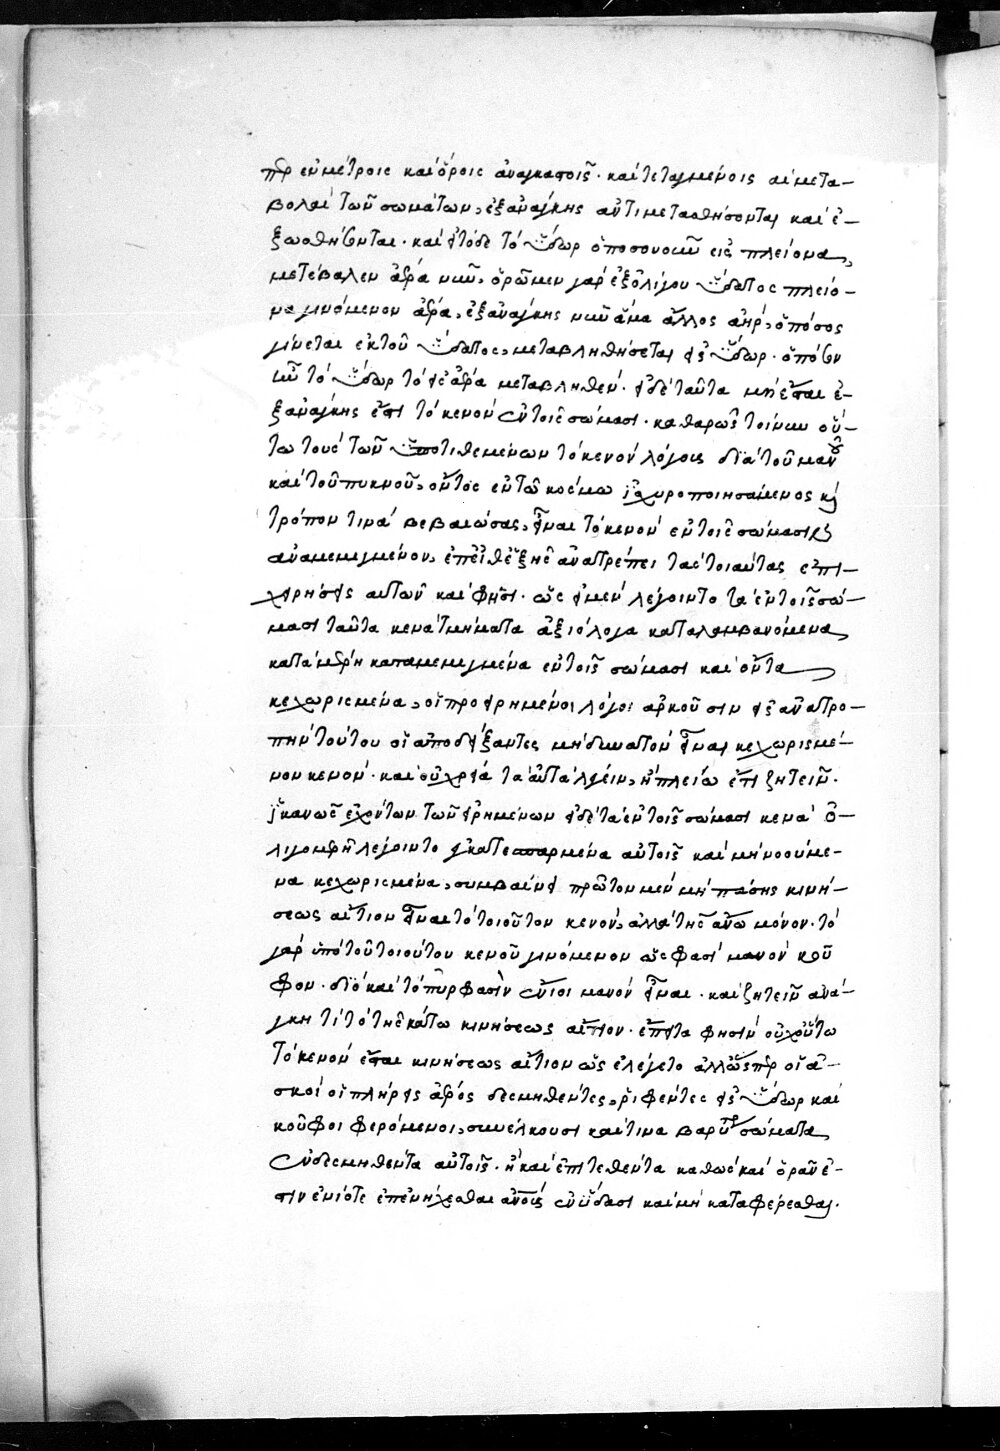 περ ἐν μέτροις καὶ ὅροις ἀναγκαίοις· καὶ τεταγμένοις αἱ μετα-
βολαὶ τῶν σωμάτων, ἐξανάγκης ἀντιμεταστήσονται καὶ ἐ-
ξωσθήσονται· καὶ εἰ τόδε τὸ ὕδωρ ὁποσονοῦν εἰς πλείονα,
μετέβαλεν ἀέρα νῦν, ὁρῶμεν γὰρ ἐξ ὀλίγου ὕδατος πλείο-
να γινόμενον ἀέρα, ἐξανάγκης νῦν ἅμα ἄλλος ἀὴρ, ὁπόσος
γίνεται ἐκ τοῦ ὕδατος, μεταβληθήσεται εἰς ὕδωρ· ὁπόσον
ἦν τὸ ὕδωρ τὸ εἰς ἀέρα μεταβληθέν· εἰ δὲ ταῦτα μὴ ἔσται ἐ-
ξανάγκης ἔστι τὸ κενὸν ἐν τοῖς σώμασι· καθαρῶς τοίνυν οὕ-
τω τοὺς τῶν ὑποτιθεμένων τὸ κενὸν λόγους διὰ τοῦ μανοῦ
καὶ τοῦ πυκνοῦ, ὄντος ἐν τῷ κόσμω ἰσχυροποιησάμενος καὶ
τρόπον τινὰ βεβαιώσας, εἶναι τὸ κενὸν ἐν τοῖς σώμασι
ἀναμεμιγμένον, ἐπειθ ἑξῆς ἀνατρέπει τὰς τοιαύτας ἐπι-
χειρήσεις αὐτῶν καὶ φησι· ὡς εἰ μὲν λέγοιντο τὰ ἐν τοῖς σώ-
μασι ταῦτα κενὰ τμήματα ἀξιόλογα καταλαμβανόμενα,
κατὰ μέρη καταμεμιγμένα ἐν τοῖς σώμασι καὶ ὄντα
κεχωρισμένα, οἱ προειρημένοι λόγοι ἀρκοῦσιν εἰς ἀνατρο-
πὴν τούτου οἱ ἀποδείξαντες μὴ δυνατὸν εἶναι κεχωρισμέ-
νον κενόν· καὶ οὐ χρεία τὰ αὐτὰ λέγειν, ἢ πλείω ἐπιζητεῖν·
ἱκανῶς ἐχόντων τῶν εἰρημένων εἰ δὲ τὰ ἐν τοῖς σώμασι κενὰ ὀ-
λιγομερῆ λέγοιντο ἐγκατεσπαρμένα αὐτοῖς καὶ μὴ νοούμε-
να κεχωρισμένα, συμβαίνει πρῶτον μὲν μὴ πάσης κινή-
σεως αἴτιον εἶναι τὸ τοιοῦτον κενόν, ἀλλὰ τῆς ἄνω μόνον· τὸ
γὰρ ὑπὸ τοῦ τοιούτου κενοῦ γινόμενον ὥς φασι μανὸν κοῦ
φον· διὸ καὶ τὸ πῦρ φασὶν ἔνιοι μανὸν εἶναι· καὶ ζητεῖν ἀνά-
γκη τί τὸ τῆς κάτω κινήσεως αἴτιον· ἔπειτα φησὶν οὐχ οὕτω
τὸ κενὸν ἔσται κινήσεως αἴτιον ὡς ἐλέγετο ἀλλ' ὥσπερ οἱ ἀ-
σκοὶ οἱ πλήρεις ἀέρος δεσμηθέντες, ῥιφέντες εἰς ὕδωρ καὶ
κοῦφοι φερόμενοι, συνέλκουσι καὶ τινα βαρύτερα σώματα,
συνδεσμηθέντα αὐτοῖς· ἢ καὶ ἐπιτεθέντα καθὼς καὶ ὁρᾶν ἐ-
στιν ἐνίοτε ἐπενήχεσθαι αὐτοῖς ἐν ὕδασι καὶ μὴ καταφέρεσθαι.